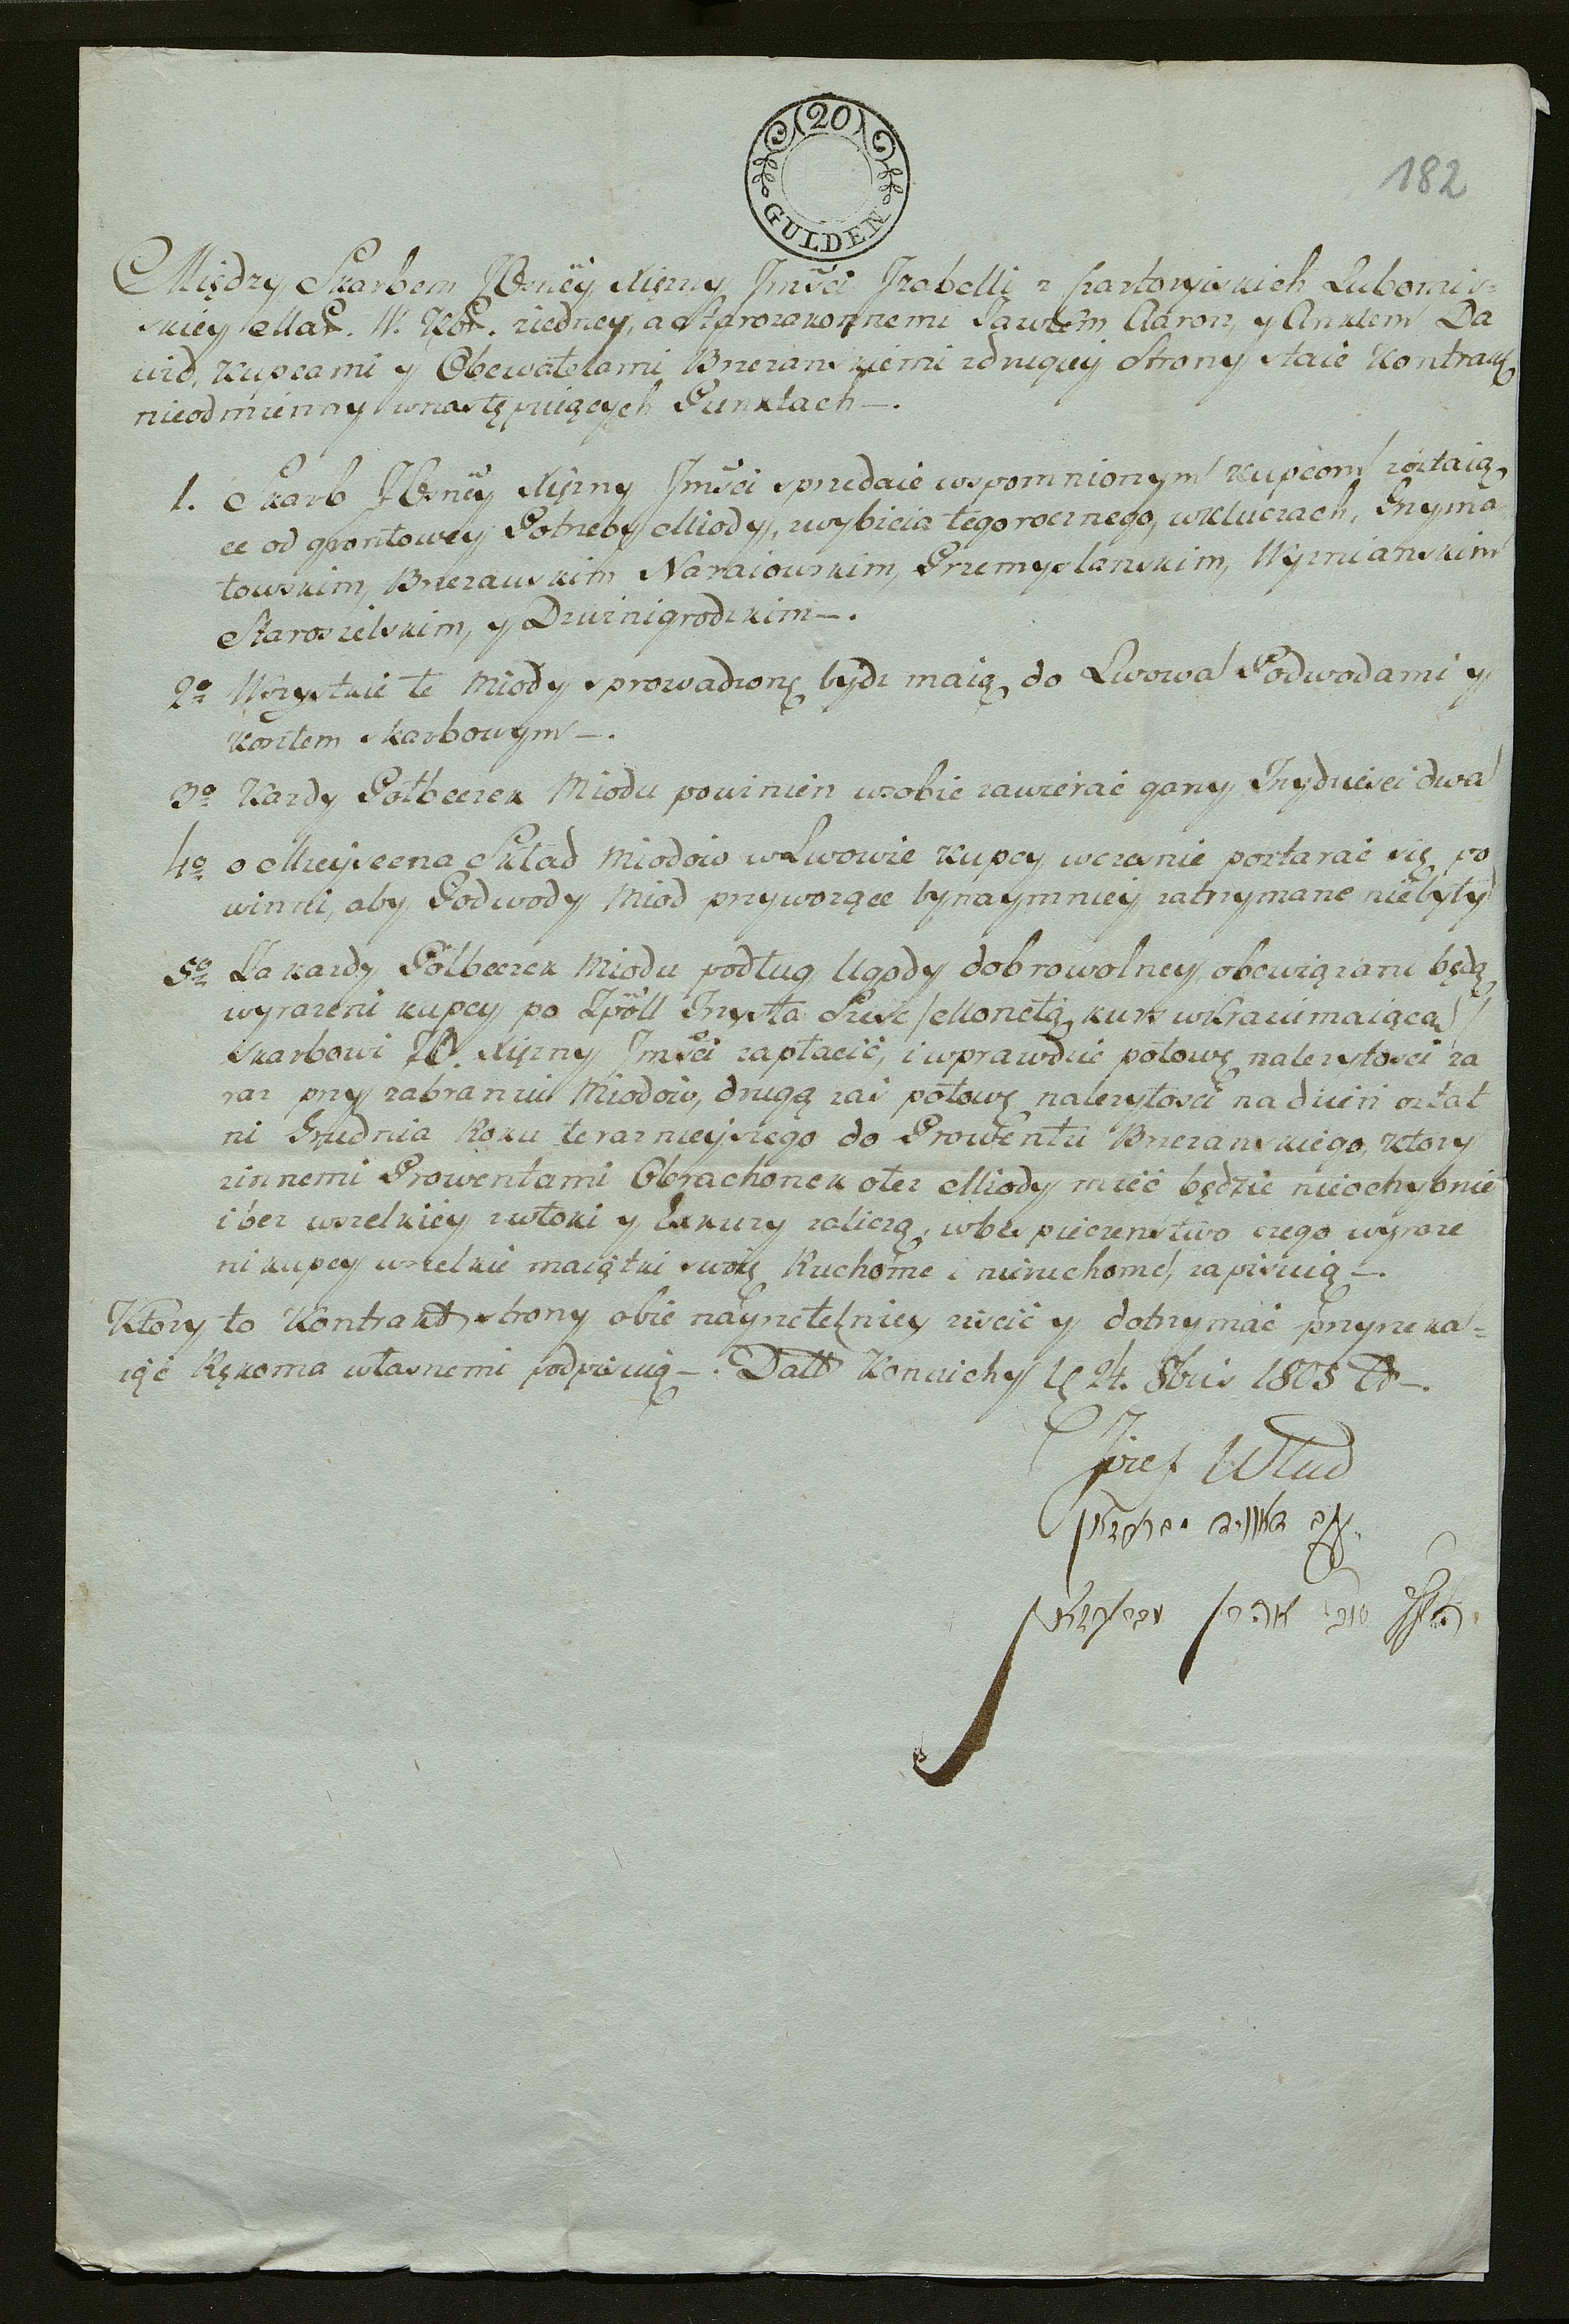 20
GULDEN
182
Między Skarbem JOsney Xiężny Jmści Izabelli z Czartoryiskich Lubomir=
skiey Mar. W. Kor. ziedney, a Starozakonnemi Aaron, y Da
wid, kupcami y Obewatelami Brzezanskiemi zdrugiey Strony staie Kontrakt
nieodmienny wnastępuiących Punktach —.
1. Skarb JOsney Xiężny Jmści sprzedaie wspomnionym kupcom zostaią
ce od grontowey Potrzeby Miody, zwybicia tegorocznego, wkluczach, Grzyma
łowskim, Brzezanskim Naraiowskim, Przemyslanskim, Wyżnianskim
Starosielskim, y Dzwinigrodzkim —.
2o Wszystkie te Miody sprowadzone bydz maią do Lwowa Podwodami y
kosztem skarbowym —.
3o Kazdy Półbeczek Miodu powinien wsobie zawierać garcy Trzydzieści dwa
4o o Mieysce na Skład Miodow w Lwowie kupcy wczesnie postarać się po
winni, aby Podwody Miod przywożące bynaymniey zatrzymane niebyły
5o Za kazdy Półbeczek Miodu podług Ugody dobrowolney, obowiązani będą
wyrazeni kupcy po Zpoll Trzysta Sześć /Monetą kurs wKraiu maiącą/
Skarbowi JO. Xiężny Jmści zapłacić, i wprawdzie połowę nalezytosci za
raz przy zabraniu Miodow, drugą zaś połowę nalezytosci na dzień ostat
ni Grudnia Roku teraznieyszego do Prowentu Brzezanskiego, ktory
zinnemi Prowentami Obrachonek otez Miody mieć będzie nieochybnie
i bez wszelkiey zwłoki y Exkuzy zaliczą, wbespieczenstwo czego wyraze
ni kupcy wszelkie maiątki swoie Ruchome i nieruchome, zapisuią —.
Ktory to Kontrakt strony obie nayrzetelniey ziścić y dotrzymać przyrzeka=
iąc Rękoma własnemi podpisuią —. Datt Koniuchy d 24. 8bris 1805 Ro —.
Józef